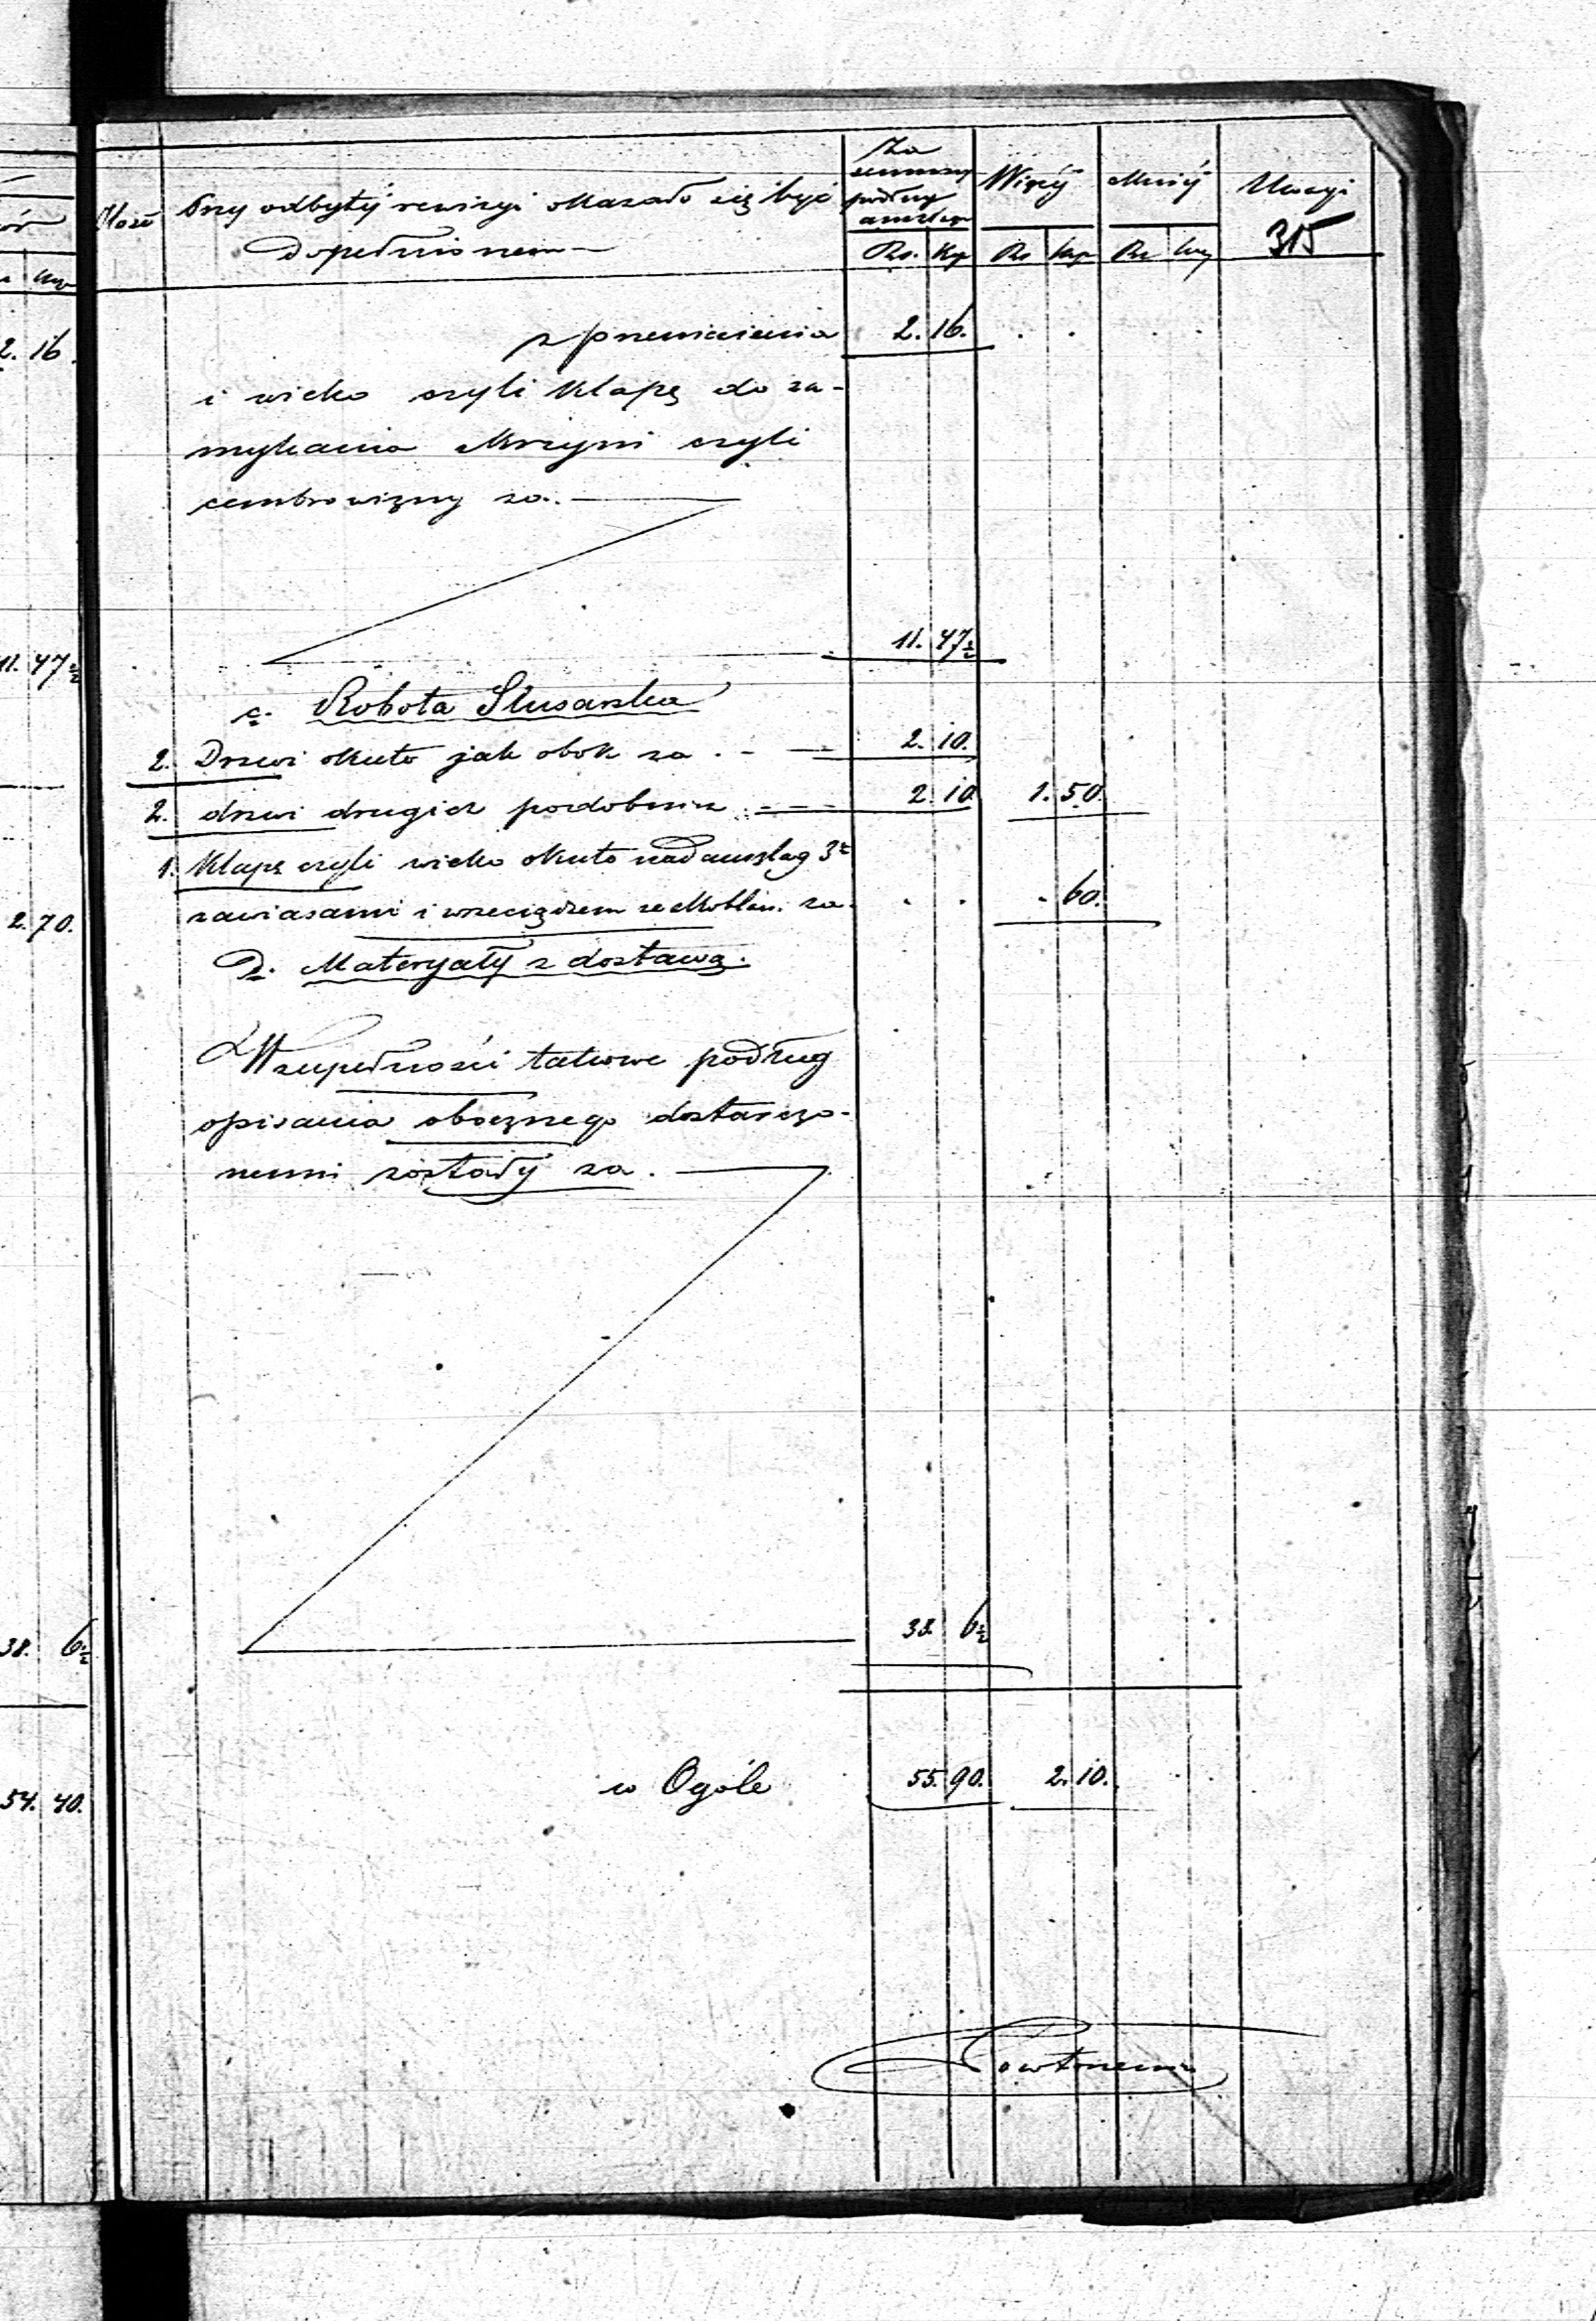 Ilość
Przy odbytéj rewizyi okazało się być
Dopełnionem
Za
summy
podług
anszlagu
Rs. Kop
Więcéj
Rs Kop
Mniéj
Rs Kop
Uwagi
315
z przeniesienia 2. 16. . . . .
i wieko czyli klapę do za-
mykania skrzyni czyli
cembrowizny za.
11. 47½
c. Robota Slusarska
2. Drzwi okuto jak obok za . - 2. 10.
2. drzwi drugich podobnież 2. 10 1. 50.
1. Klapę czyli wieko okuto nad anszlag 3ma
zawiasami i wrzeciądzem ze skoblam. za . . . - 60.
D. Materyały z dostawą.
W zupełności takowe podług
opisania obocznego dostarczo-
nemi zostały za.
38. 6½
w Ogóle 55. 90. 2. 10. . .
2. 16.
11. 47½
2. 70.
38. 6½
54. 40.